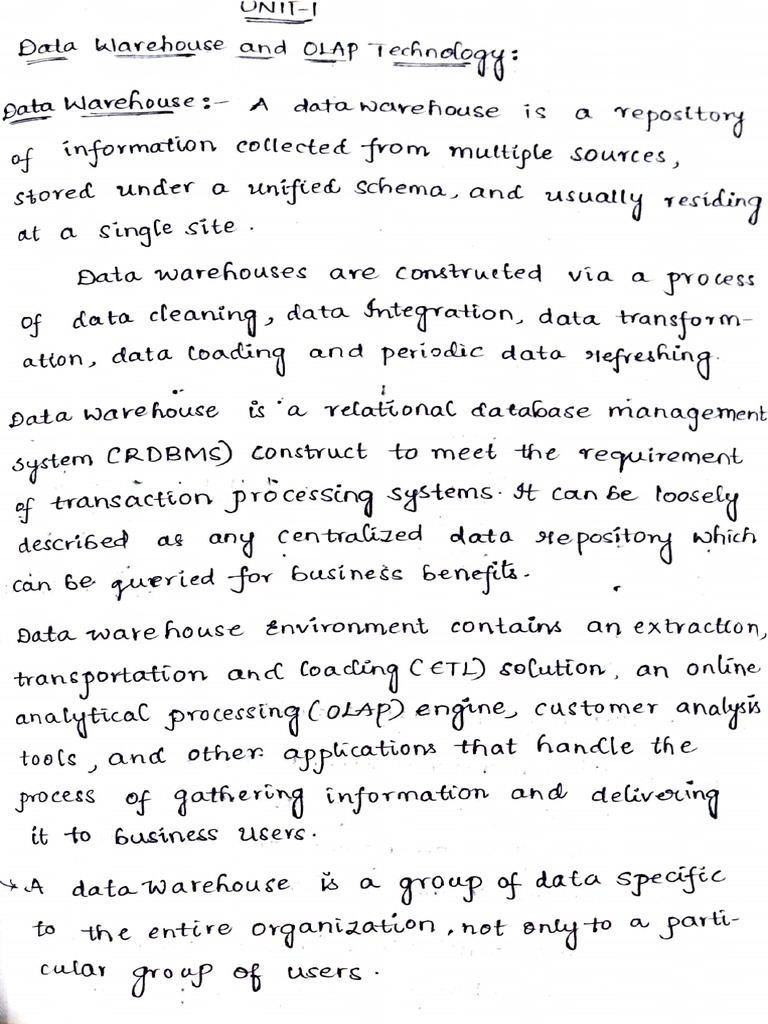 UNIT-1
Data Warehouse and OLAP Technology:
Data Warehouse:- A data warehouse is a repository
of information collected from multiple sources,
stored under a unified schema, and usually residing
at a single site.
Data warehouses are constructed via a process
of data cleaning, data Integration, data transform-
ation, data loading and periodic data refreshing.
Data warehouse is a relational database management
system (RDBMS) construct to meet the requirement
of transaction processing systems. It can be loosely
described as any centralized data repository which
can be queried for business benefits.
Data warehouse Environment contains an extraction,
transportation and loading (ETL) solution, an online
analytical processing (OLAP) engine, customer analysis
tools, and other applications that handle the
process of gathering information and delivering
it to business users.
→ A data warehouse is a group of data specific
to the entire organization, not only to a parti-
cular group of users.